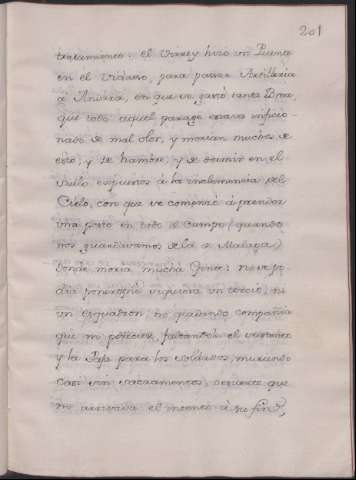 201
tratamiento. el Virrey hizo un Puente
en el Vidrero, para passar Artilleria
à Andria, en que se gastó tanta Brea,
que todo aquel parage estava inficio-
nado de mal olor, y morian muchos de
esto, y de hambre, y de dormir en el
suelo expuestos à la inclemencia del
Cielo, con que se comenzó à prender
una peste en todo el Campo (quando
nos guardavamos de la de Malaga)
donde moria mucha Gente: no se po-
dia poner en pie siquiera un tercio, ni
un Esquadron, no quedando compañia
que no pereciese, faltando el sustento
y la Paja para los Soldados, muriendo
casi sin sacramentos, de suerte que
no arrivava el menos à su fin,